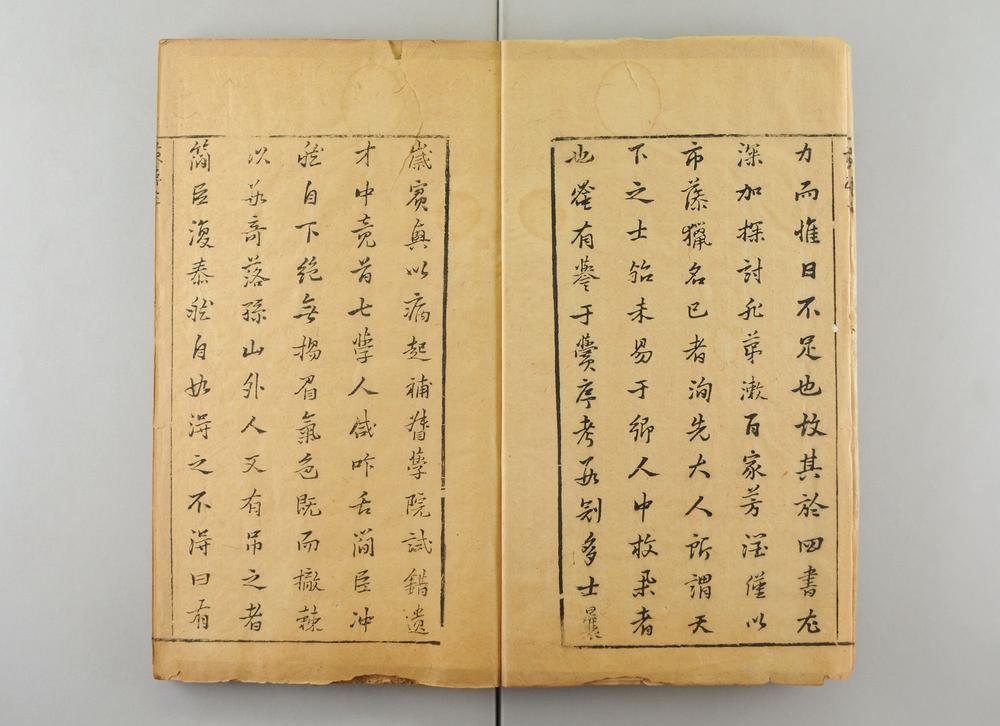 力而惟日不足也故其於四書尤
深加探討非第漱百家芳潤僅以
市藻獵名已者洵先大人所謂天
下之士始未易于鄉人中枚朶者
也有譽于黌序考每別多士曩
歲賓興以病起補督學院試錯遺
才中竟首七學人咸咋舌簡臣冲
然自下絕無揚眉氣色既而撤棘
以数奇落孫山外人又有吊之者
簡臣復泰然自如得之不得曰有